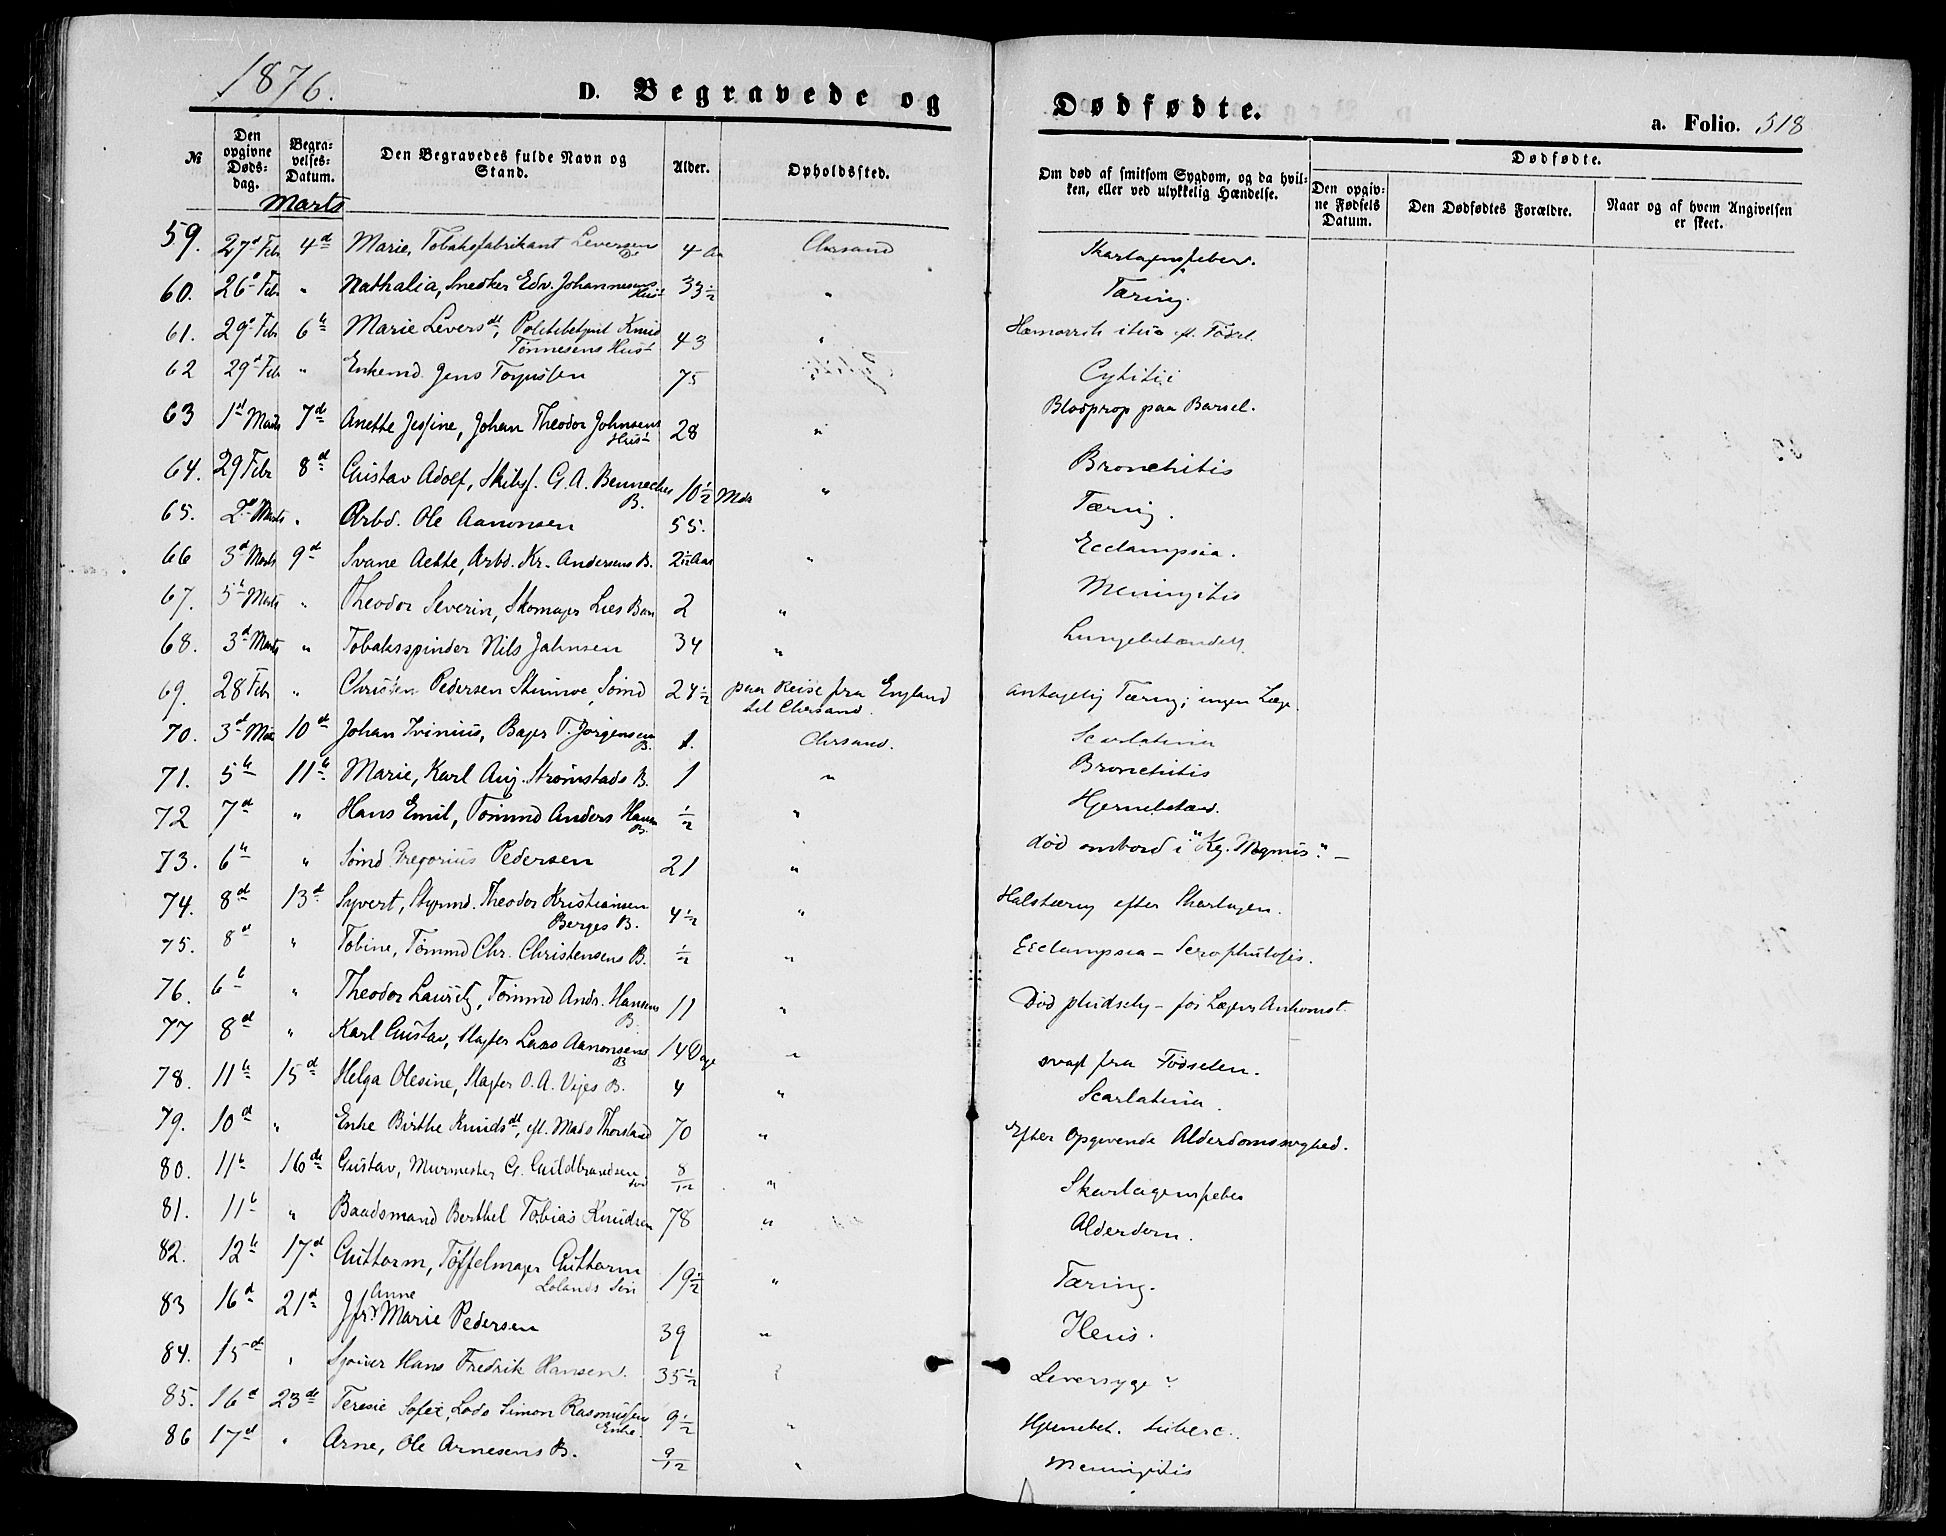 1876.
D. Begravede og Dødfødte.
a. Folio. 518
№
Den opgivne Døds-dag.
Begra-velses-Datum.
Den Begravedes fulde Navn og Stand.
Alder.
Opholdssted.
Om død af smitsom Sygdom, og da hvil-ken, eller ved ulykkelig Hændelse.
Dødfødte.
Den opgiv-ne Fødsels Datum.
Den Dødfødtes Forældre.
Naar og af hvem Angivelsen er skeet.
Marts
59. 27d Febr 4d Marie, Tobaksfabrikant Leversen 4 Aar Chrsand Skarlagensfeber.
60. 26d Febr " Nathalia, Snedker Edv. Johannesens Hust 33½ " Tæring.
61. 29d Febr 6te Marie Leversdt, Politibetjent Knud Tønnesens Hust 43 " ft. Fødsel.
62 29d Febr " Enkemd. Jens 75 "
63 1d Marts 7d Anette Jessine, Johan Theodor Johnsens Hust 28 " Blodprop paa Barsel.
64. 29 Febr 8d Gustav Adolf, Skibsf. G. A. Bennechs B. 10½ Mdr " Bronchitis
65. 2d Marts " Arbd. Ole Aanonsen 55. Tæring.
66 3d Marts 9d Svane Aette, Arbd. Kr. Andersens B. 2½ Aar " Ecclampsia.
67. 5te Marts " Theodor Severin, Skomager Lies Barn 2 " Meningitis
68. 3d Marts " Tobaksspinder Nils Jahnsen 34 " Lungebetændelse
69. 28 Febr " Christen Pedersen Sømd 24½ paa Reise fra England til Chrsand. antagelig Tæring; ingen Læge.
70. 3d Mar 10d Johan Irinius, Bager T. Jørgensen B. 1. Chrsand. Scarlatina
71. 5te 11te Marie, Karl Aug. Strømstads B. 1 " Bronchitis
72 7d " Hans Emil, Tømmd Anders Hansen B. ½ " Hjernebetænd.
73. 6te " Sømd Gregorius Pedersen 21 " død ombord i "Kg. Magnus". –
74. 8d 13d Syvert, Styrmd. Theodor Kristiansen Berges B. 4½ " Halstæring efter Skarlagen.
75. 8d " Tobine, Tømmd Chr. Christensens B. ½ " Ecclampsia – Scrophulosis.
76. 6te " Theodor Lauritz, Tømmd Andr. Hansens B. 11 " Død pludselig – før Lægens Ankomst.
77 8d " Karl Gustav, Slagter Lars Aanonsens B 14 Dage " svag fra Fødselen.
78. 11te 15d Helga Olesine, Slagter O. A. Viges B. 4 " Scarlatina.
79. 10d " Enke Birthe Knudsdt, eft. Mads Thorsland 70 " Efter Opgivende Alderdomssvaghed.
80. 11te 16de Gustav, Murmester G. Guldbrandsen Søn 8/12 " Skarlagensfeber
81. 11te " Baadsmand Berthel Tobias Knudsen 78 " Alderdom.
82. 12te 17d Guttorm, Tøffelmager Guttorm Lolands Søn 19½ " Tæring.
83 16d 21d Jfr. Anne Marie Pedersen 39 " Ileus.
84. 15d " Hans Fredrik Hansen. 35½ " Leversyge?
85. 16d 23de Teresie Sofie, Lods Simon Rasmussens Enke. 9½ " Hjernebet. tuberc..
86 17d " Arne, Ole Arnesens B. 9/12 " Meningitis